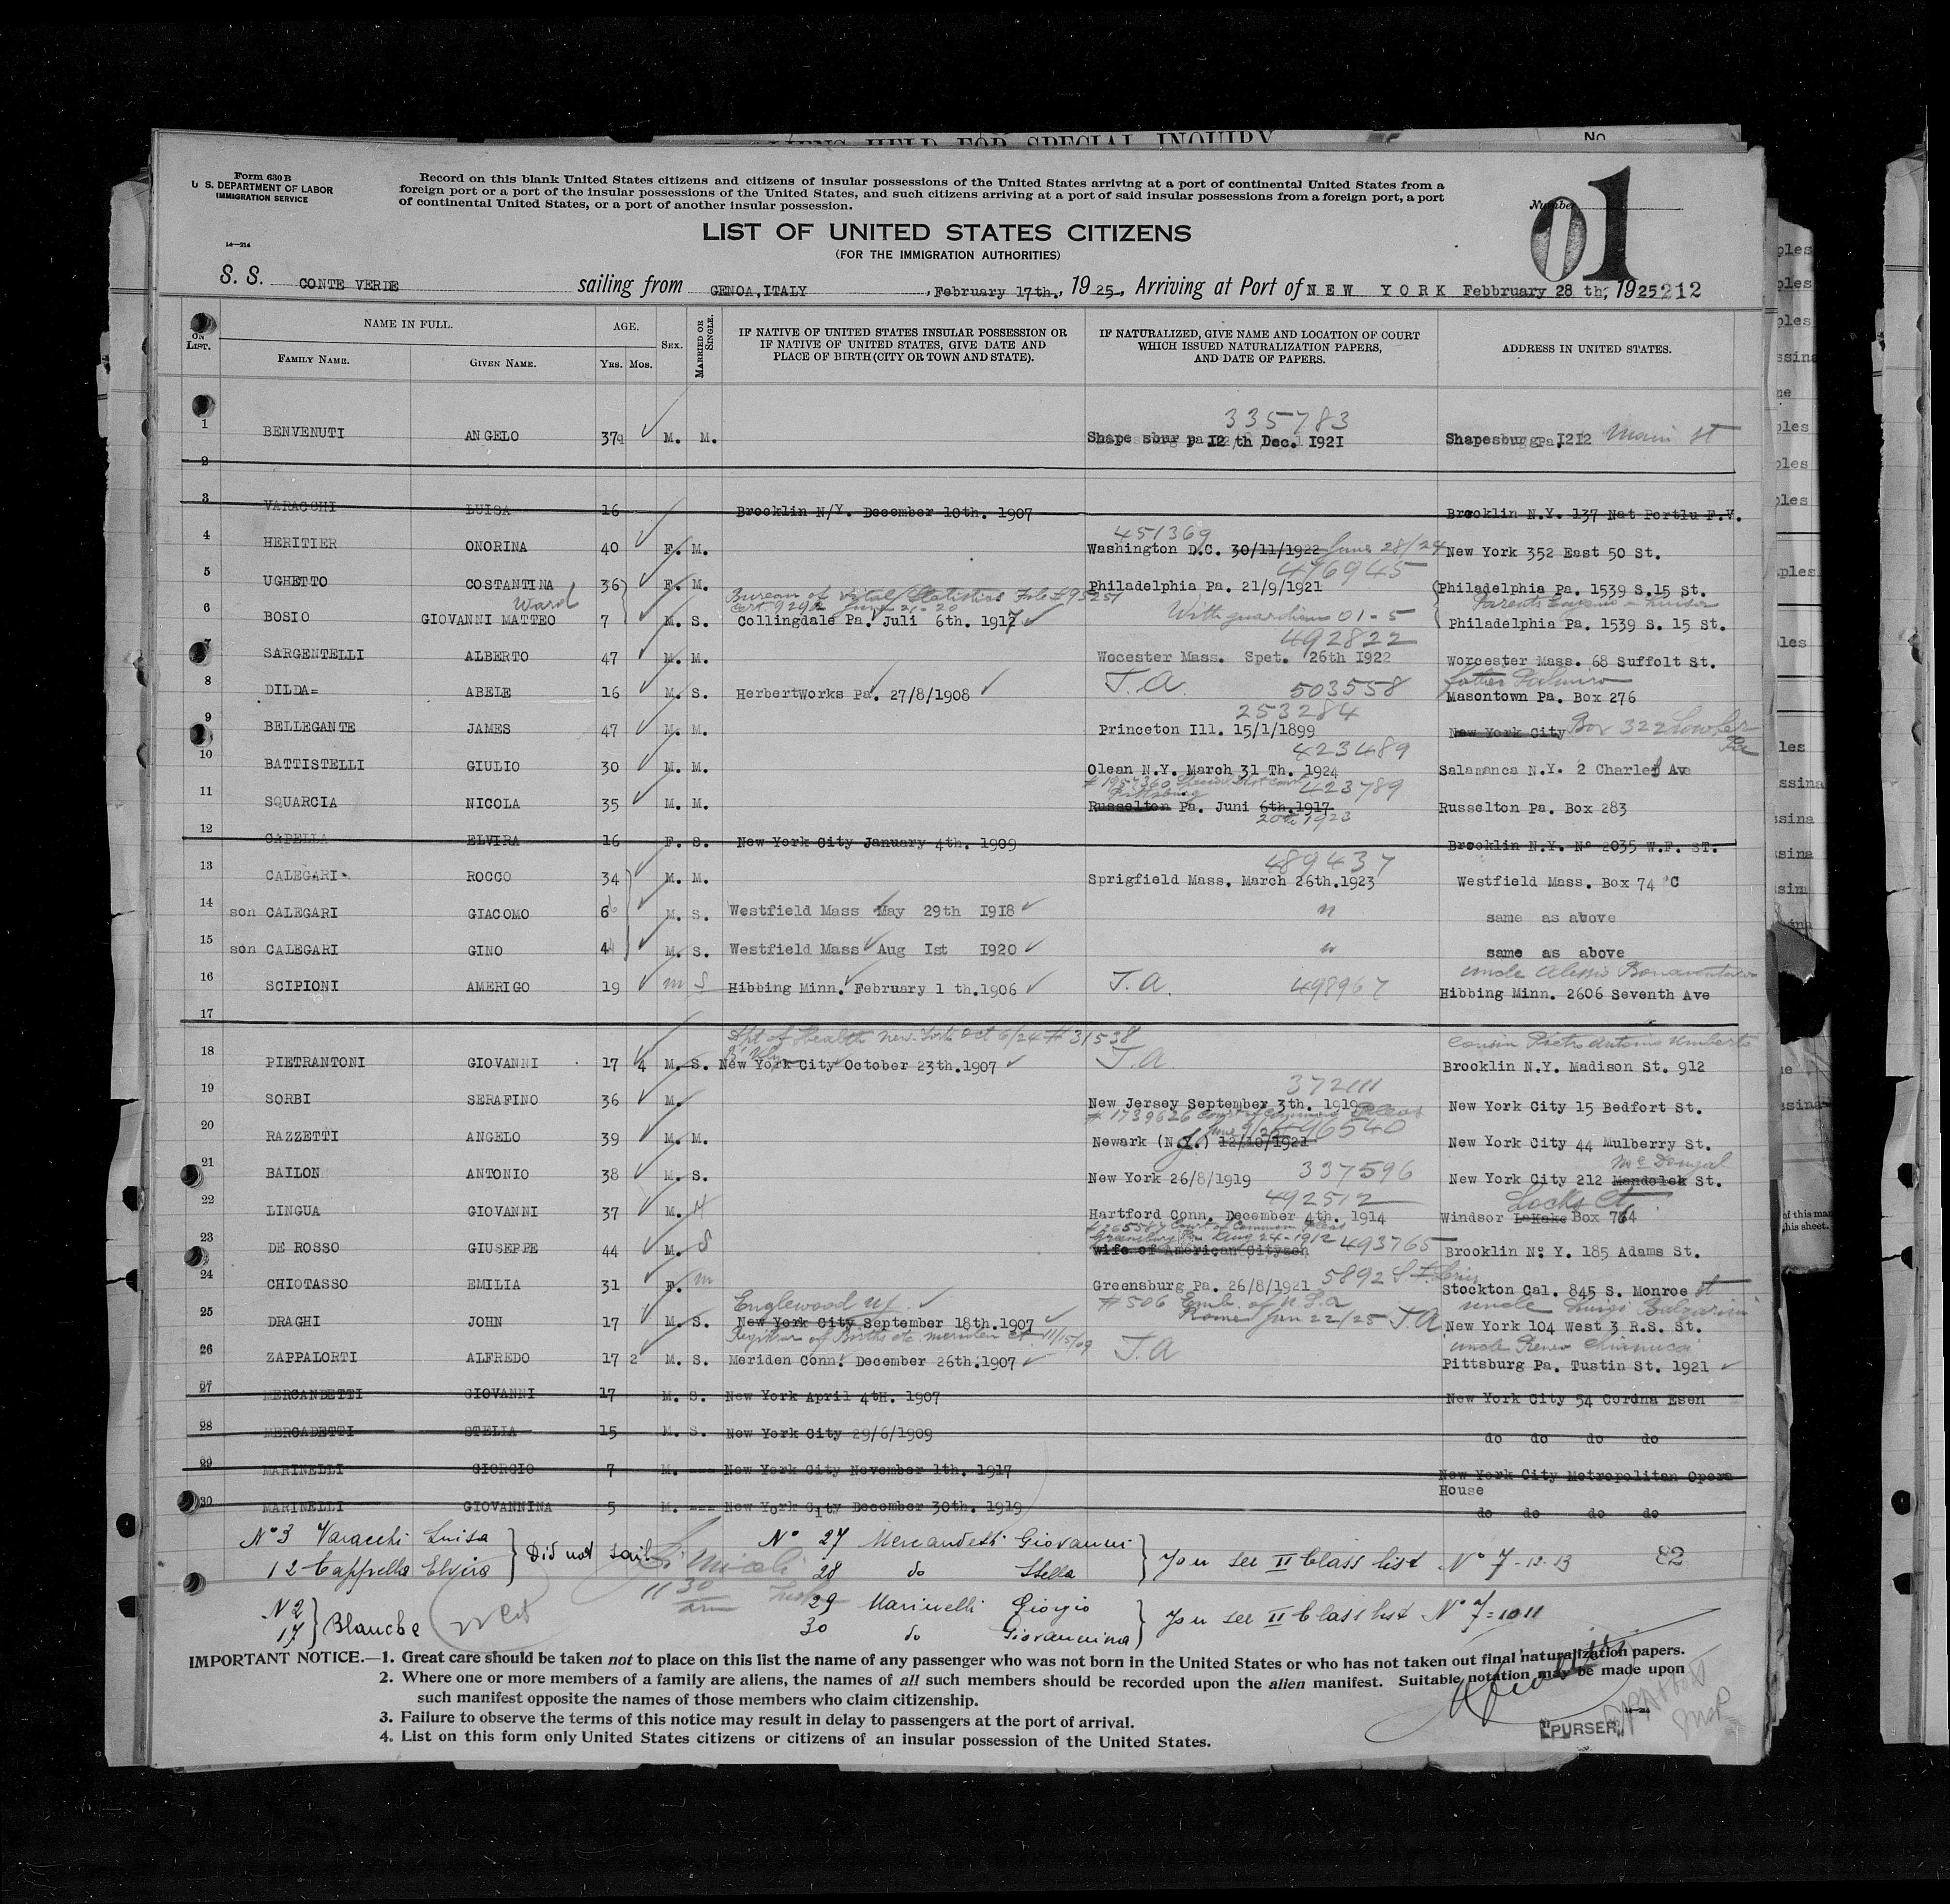 ALIENS HELD FOR SPECIAL INQUIRY
No
Form 630 B
U. S. DEPARTMENT OF LABOR
IMMIGRATION SERVICE
14—214
Record on this blank United States citizens and citizens of insular possessions of the United States arriving at a port of continental United States from a
foreign port or a port of the insular possessions of the United States, and such citizens arriving at a port of said insular possessions from a foreign port, a port
of continental United States, or a port of another insular possession.
Number
01
LIST OF UNITED STATES CITIZENS
(FOR THE IMMIGRATION AUTHORITIES)
S. S. CONTE VERDE sailing from GENOA,ITALY , February 17th., 1925, Arriving at Port of NEW YORK Febbruary 28 th, 1925 212
No. ON LIST. NAME IN FULL. AGE. SEX. MARRIED OR SINGLE. IF NATIVE OF UNITED STATES INSULAR POSSESSION OR IF NATIVE OF UNITED STATES, GIVE DATE AND PLACE OF BIRTH (CITY OR TOWN AND STATE). IF NATURALIZED, GIVE NAME AND LOCATION OF COURT WHICH ISSUED NATURALIZATION PAPERS, AND DATE OF PAPERS. ADDRESS IN UNITED STATES.
FAMILY NAME. GIVEN NAME. Yrs. Mos.
335783
1 BENVENUTI ANGELO 37 M. M. Shapesburg pa 12 th Dec. 1921 Shapesburg Pa. 1212 Main St
2
3 VARACCHI LUISA 16 Brocklin N/Y. December 10th. 1907 Brocklin N.Y. 137 Nat Portlu F.V.
451369
4 HERITIER ONORINA 40 F. M. Washington D.C. 30/11/1922 June 28/24 New York 352 East 50 St.
476945
5 UGHETTO COSTANTINA 36 F. M. Philadelphia Pa. 21/9/1921 Philadelphia Pa. 1539 S.15 St.
Ward Bureau of Vital Statistics File #95251
Cert. 9292 June 21-20 Parents
6 BOSIO GIOVANNI MATTEO 7 M. S. Collingdale Pa. Juli 6th. 1917 With guardian 01-5 Philadelphia Pa. 1539 S. 15 St.
492822
7 SARGENTELLI ALBERTO 47 M. M. Wocester Mass. Spet. 26th 1922 Worcester Mass. 68 Suffolt St.
father Palmiro
8 DILDA= ABELE 16 M. S. HerbertWorks Pa. 27/8/1908 J.A. 503558 Masontown Pa. Box 276
253284
9 BELLEGANTE JAMES 47 M. M. Princeton Ill. 15/1/1899 New York City Box 322 Lowber Pa
423489
10 BATTISTELLI GIULIO 30 M. M. Olean N.Y. March 31 Th. 1924 Salamanca N.Y. 2 Charles Ave
Pittsburg 423789
11 SQUARCIA NICOLA 35 M. M. Russelton Pa. Juni 6th.1917 Russelton Pa. Box 283
20th 1923
12 CAPELLA ELVIRA 16 F. S. New York City January 4th. 1909 Brocklin N.Y. N° 2035 W.F. ST.
489437
13 CALEGARI ROCCO 34 M. M. Sprigfield Mass. March 26th.1923 Westfield Mass. Box 74 C
14 son CALEGARI GIACOMO 6 M. S. Westfield Mass May 29th 1918 " same as above
15 son CALEGARI GINO 4 M. S. Westfield Mass Aug 1st 1920 " same as above
uncle Alessio Bonaventura
16 SCIPIONI AMERIGO 19 m S Hibbing Minn. February 1 th.1906 J.A. 498967 Hibbing Minn. 2606 Seventh Ave
17
Dpt of Health New York Oct 6/24 # 31538 Cousin Pietro Antonio Umberto
B'klyn
18 PIETRANTONI GIOVANNI 17 4 M. S. New York City October 23th.1907 J.A. Brocklin N.Y. Madison St. 912
372111
19 SORBI SERAFINO 36 M. New Jersey September 3th. 1919 New York City 15 Bedfort St.
# 1739626 Court of Common Pleas
June 9/20 496540
20 RAZZETTI ANGELO 39 M. M. Newark (N.J.) 12/10/1921 New York City 44 Mulberry St.
Mc Dougal
21 BAILON ANTONIO 38 M. S. New York 26/8/1919 337596 New York City 212 Mandolok St.
492512 Locks Ct.
22 LINGUA GIOVANNI 37 M. M Hartford Conn. December 4th. 1914 Windsor LaKake Box 764
# 265587 Court of Common Pleas
Greensburg Pa Aug 24-1912 493765
23 DE ROSSO GIUSEPPE 44 M. S wife of American Cityzen Brocklin N: Y. 185 Adams St.
24 CHIOTASSO EMILIA 31 F. m Greensburg Pa. 26/8/1921 5892 Stockton Cal. 845 S. Monroe St
Englewood NJ # 506 Emb. of U.S.A uncle Luigi Balzarini
25 DRAGHI JOHN 17 M. S. New York City September 18th.1907 Rome Jan 22/25 J.A New York 104 West 3 R.S. St.
Registrar of Births etc Meriden Ct 11/15/09 uncle
26 ZAPPALORTI ALFREDO 17 2 M. S. Meriden Conn. December 26th.1907 J.A Pittsburg Pa. Tustin St. 1921
27 MERCANDETTI GIOVANNI 17 M. S. New York April 4tH. 1907 New York City 54 Cordna Esen
28 MERCADETTI STELLA 15 M. S. New York City 29/6/1909 do do do do
29 MARINELLI GIORGIO 7 M. --- New York City November 1th. 1917 New York City Metropolitan Opera House
30 MARINELLI GIOVANNINA 5 M. --- New York City December 30th. 1919 do do do do
N° 3 Varacchi Luisa } Did not sail N° 27 Mercandetti Giovanni } You see II Class list N° 7-12-13 82
12 Cappella Elvira 28 do Stella
11 30 am
N 2 } Blanche 29 Marinelli Giorgio } You see II Class list N° 7=10 11
17 30 do Giovannina
IMPORTANT NOTICE.—1. Great care should be taken not to place on this list the name of any passenger who was not born in the United States or who has not taken out final naturalization papers.
2. Where one or more members of a family are aliens, the names of all such members should be recorded upon the alien manifest. Suitable notation may be made upon
such manifest opposite the names of those members who claim citizenship.
3. Failure to observe the terms of this notice may result in delay to passengers at the port of arrival.
4. List on this form only United States citizens or citizens of an insular possession of the United States.
14—214
"PURSER"